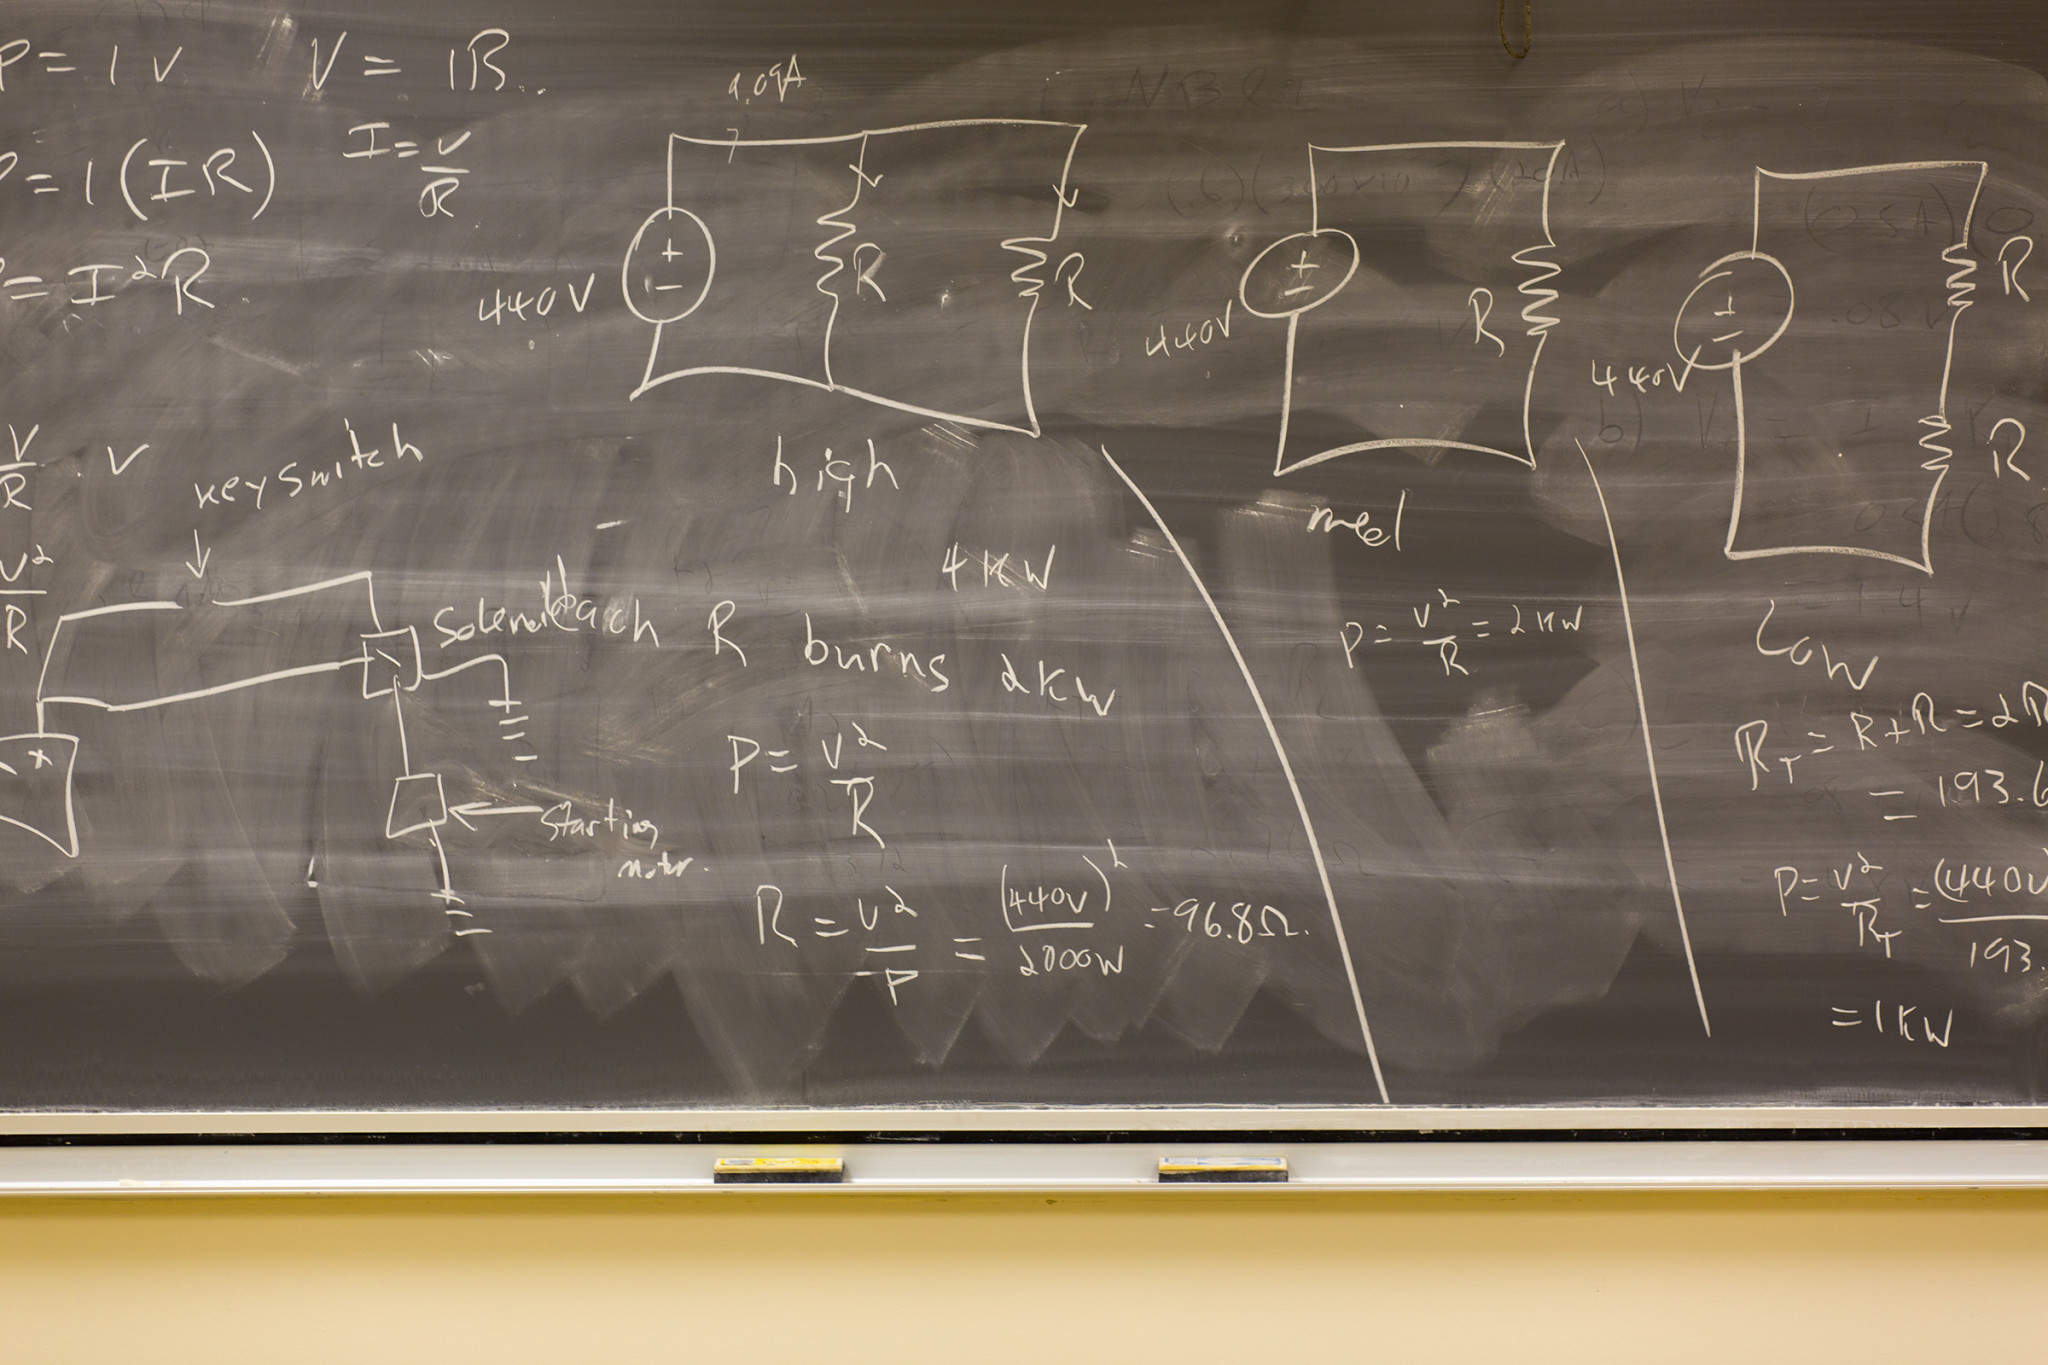 P = IV
V = IR
P = I(IR)
I = V/R
= I²R
V/R · V
V²/R
keyswitch
starting
motor.
9.09A
440V
R
R
high
4KW
each R burns 2KW
P = V²/R
R = V²/P = (440V)²/2000W = 96.8Ω.
440V
R
med
P = V²/R = 2KW
440V
R
R
Low
R_T = R+R = 2R
= 193.6
P = V²/R_T = (440V)/193.
= 1KW